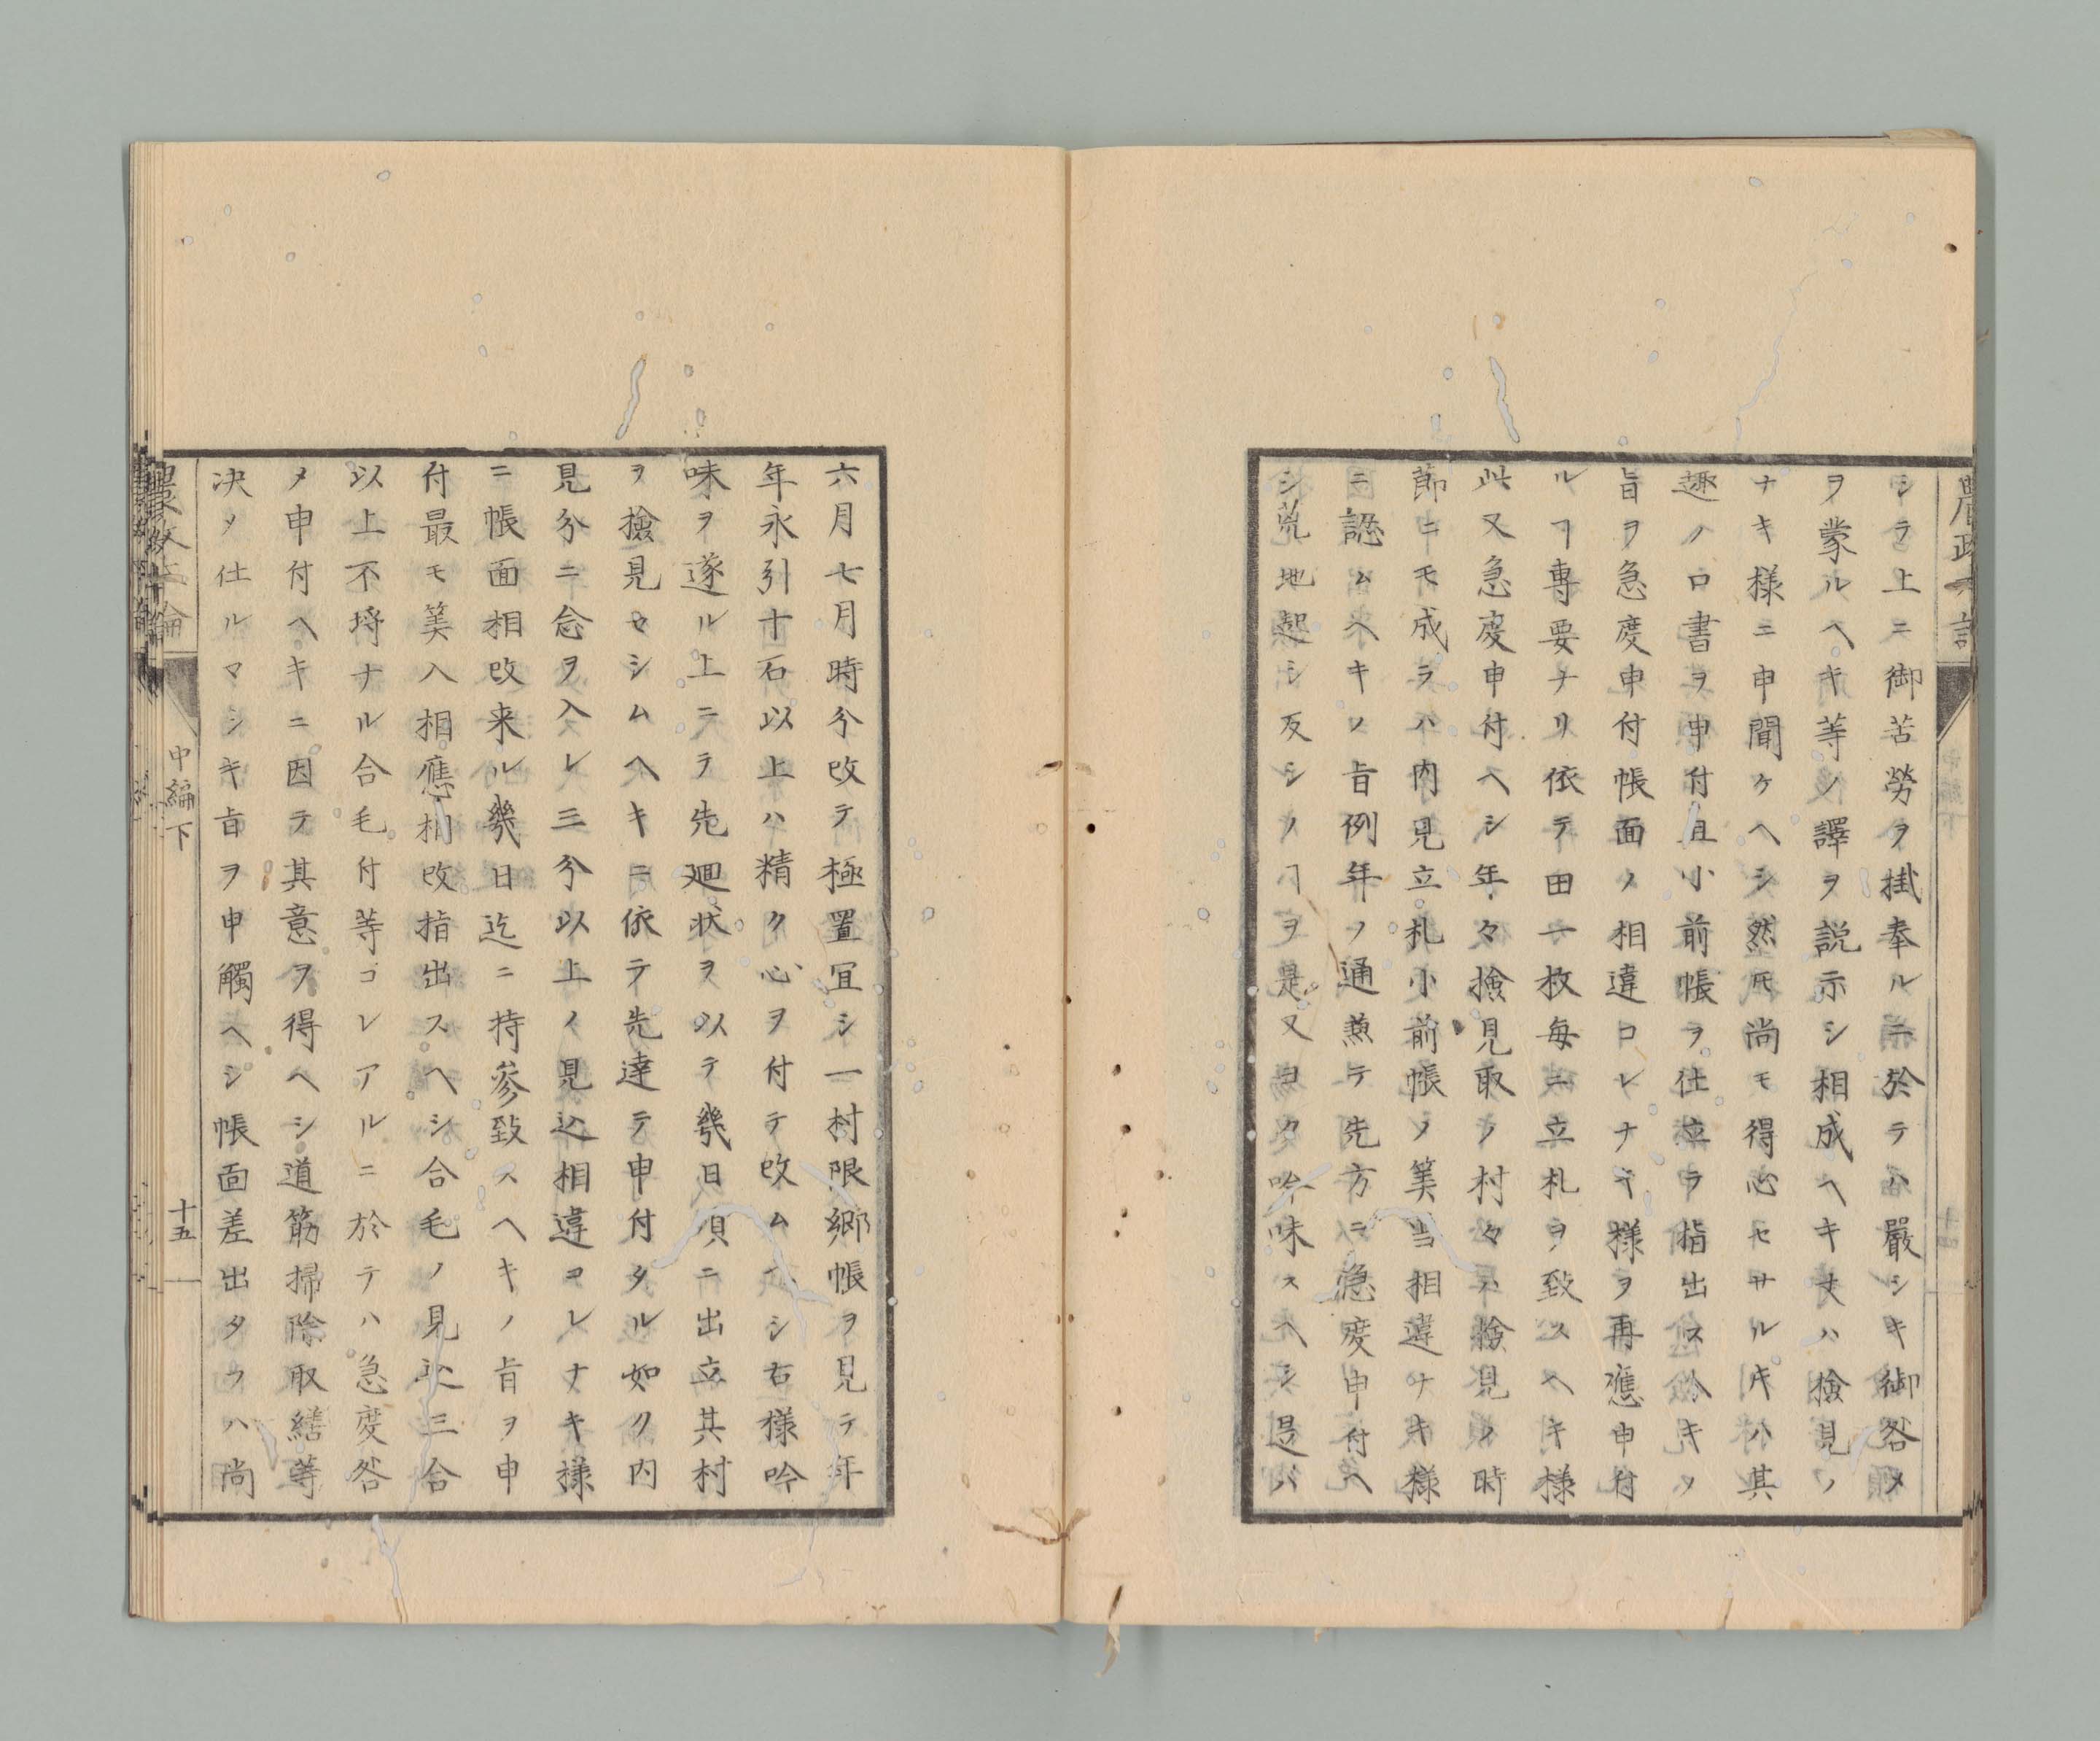 シテ上ニ御苦勞ヲ掛奉ルニ於テハ嚴シキ御咎メ
ヲ蒙ルヘキ等ノ譯ヲ説示シ相成ヘキナハ撿見ノ
ナキ様ニ申聞ケヘシ然𪜈尚モ得心セサルキハ其
趣ノ口書ヲ申付且小前帳ヲ仕立テ指出スヘキノ
旨ヲ急度申付帳面ノ相違コレナキ様ヲ再應申付
ルヿ專要ナリ依テ田一枚毎ニ立札ヲ致スヘキ様
此又急度申付ヘシ年々撿見取ノ村々ハ撿見ノ時
節ニモ成ラハ内見立札小前帳ノ筭当相違ナキ様
ニ認ムヘキノ旨例年ノ通兼テ先方ニ急度申付ヘ
シ荒地起シ反シノヿヲ是又ヨク吟味スヘシ是ハ
六月七月時分改テ極置冝シ一村限郷帳ヲ見テ年
年永引十石以上ハ精ク心ヲ付テ改ムヘシ右様吟
味ヲ遂ル上ニテ先廻状ヲ以テ幾日頃ニ出立其村
ヲ撿見セシムヘキニ依テ先達テ申付タル如ク内
見分ニ念ヲ入レ三分以上ノ見込相違コレナキ様
ニ帳面相改来ル幾日迄ニ持參致スヘキノ旨ヲ申
付最モ筭入相應相改指出スヘシ合毛ノ見込三合
以上不埒ナル合毛付等コレアルニ於テハ急度咎
メ申付ヘキニ因テ其意ヲ得ヘシ道筋掃除取繕等
決メ仕ルマシキ旨ヲ申觸ヘシ帳面差出タラハ尚
中編下
十五